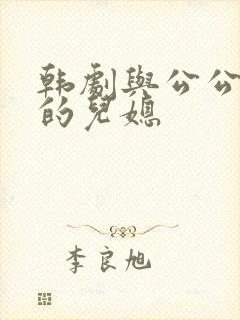 韩劇與公公
的兒媳
李良旭